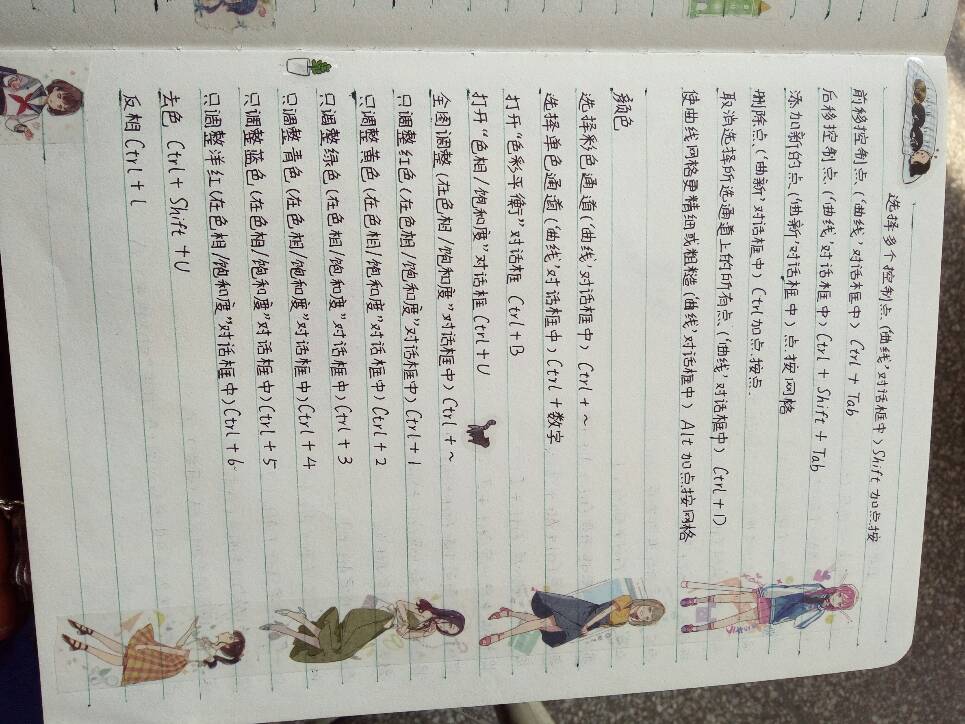 选择多个控制点('曲线'对话框中)Shift加点按
前移控制点('曲线'对话框中)Ctrl+Tab
后移控制点('曲线'对话框中)Ctrl+Shift+Tab
添加新的点('曲新'对话框中)点按网格
删除点('曲新'对话框中)Ctrl加点按点.
取消选择所选通道上的所有点('曲线'对话框中)Ctrl+D
使曲线网格更精细或粗糙('曲线'对话框中)Alt加点按网格
颜色
选择彩色通道('曲线'对话框中)Ctrl+~
选择单色通道('曲线'对话框中)Ctrl+数字
打开"色彩平衡"对话框 Ctrl+B
打开"色相/饱和度"对话框 Ctrl+U
全图调整(在色相/饱和度"对话框中)Ctrl+~
只调整红色(在色相/饱和度"对话框中)Ctrl+1
只调整黄色(在色相/饱和度"对话框中)Ctrl+2
只调整绿色(在色相/饱和度"对话框中)Ctrl+3
只调整青色(在色相/饱和度"对话框中)Ctrl+4
只调整蓝色(在色相/饱和度"对话框中)Ctrl+5
只调整洋红(在色相/饱和度"对话框中)Ctrl+6
去色 Ctrl+Shift+U
反相 Ctrl+l